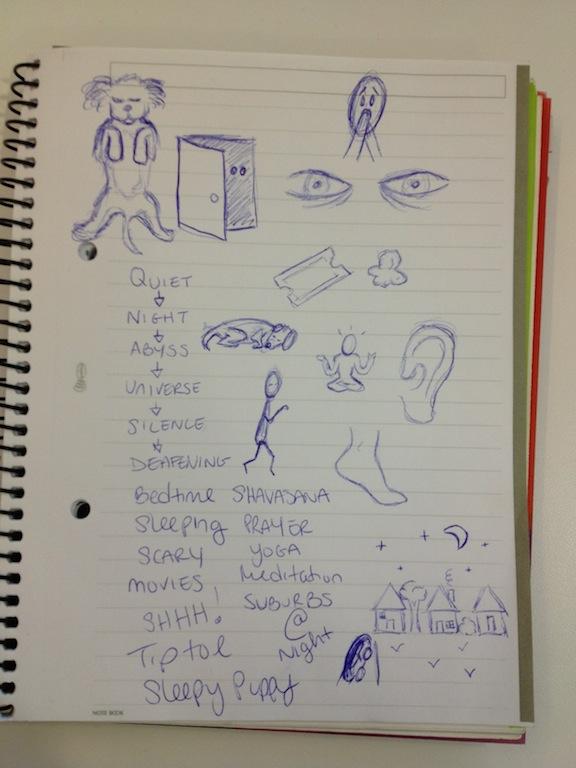 QUIET
NIGHT
ABYSS
UNIVERSE
SILENCE
DEAFENING
Bedtime
Sleeping
SCARY
MOVIES
SHHH!
Tiptoe
Sleepy Puppy
SHAVASANA
PRAYER
YOGA
Meditation
SUBURBS
@
Night
NOTE BOOK